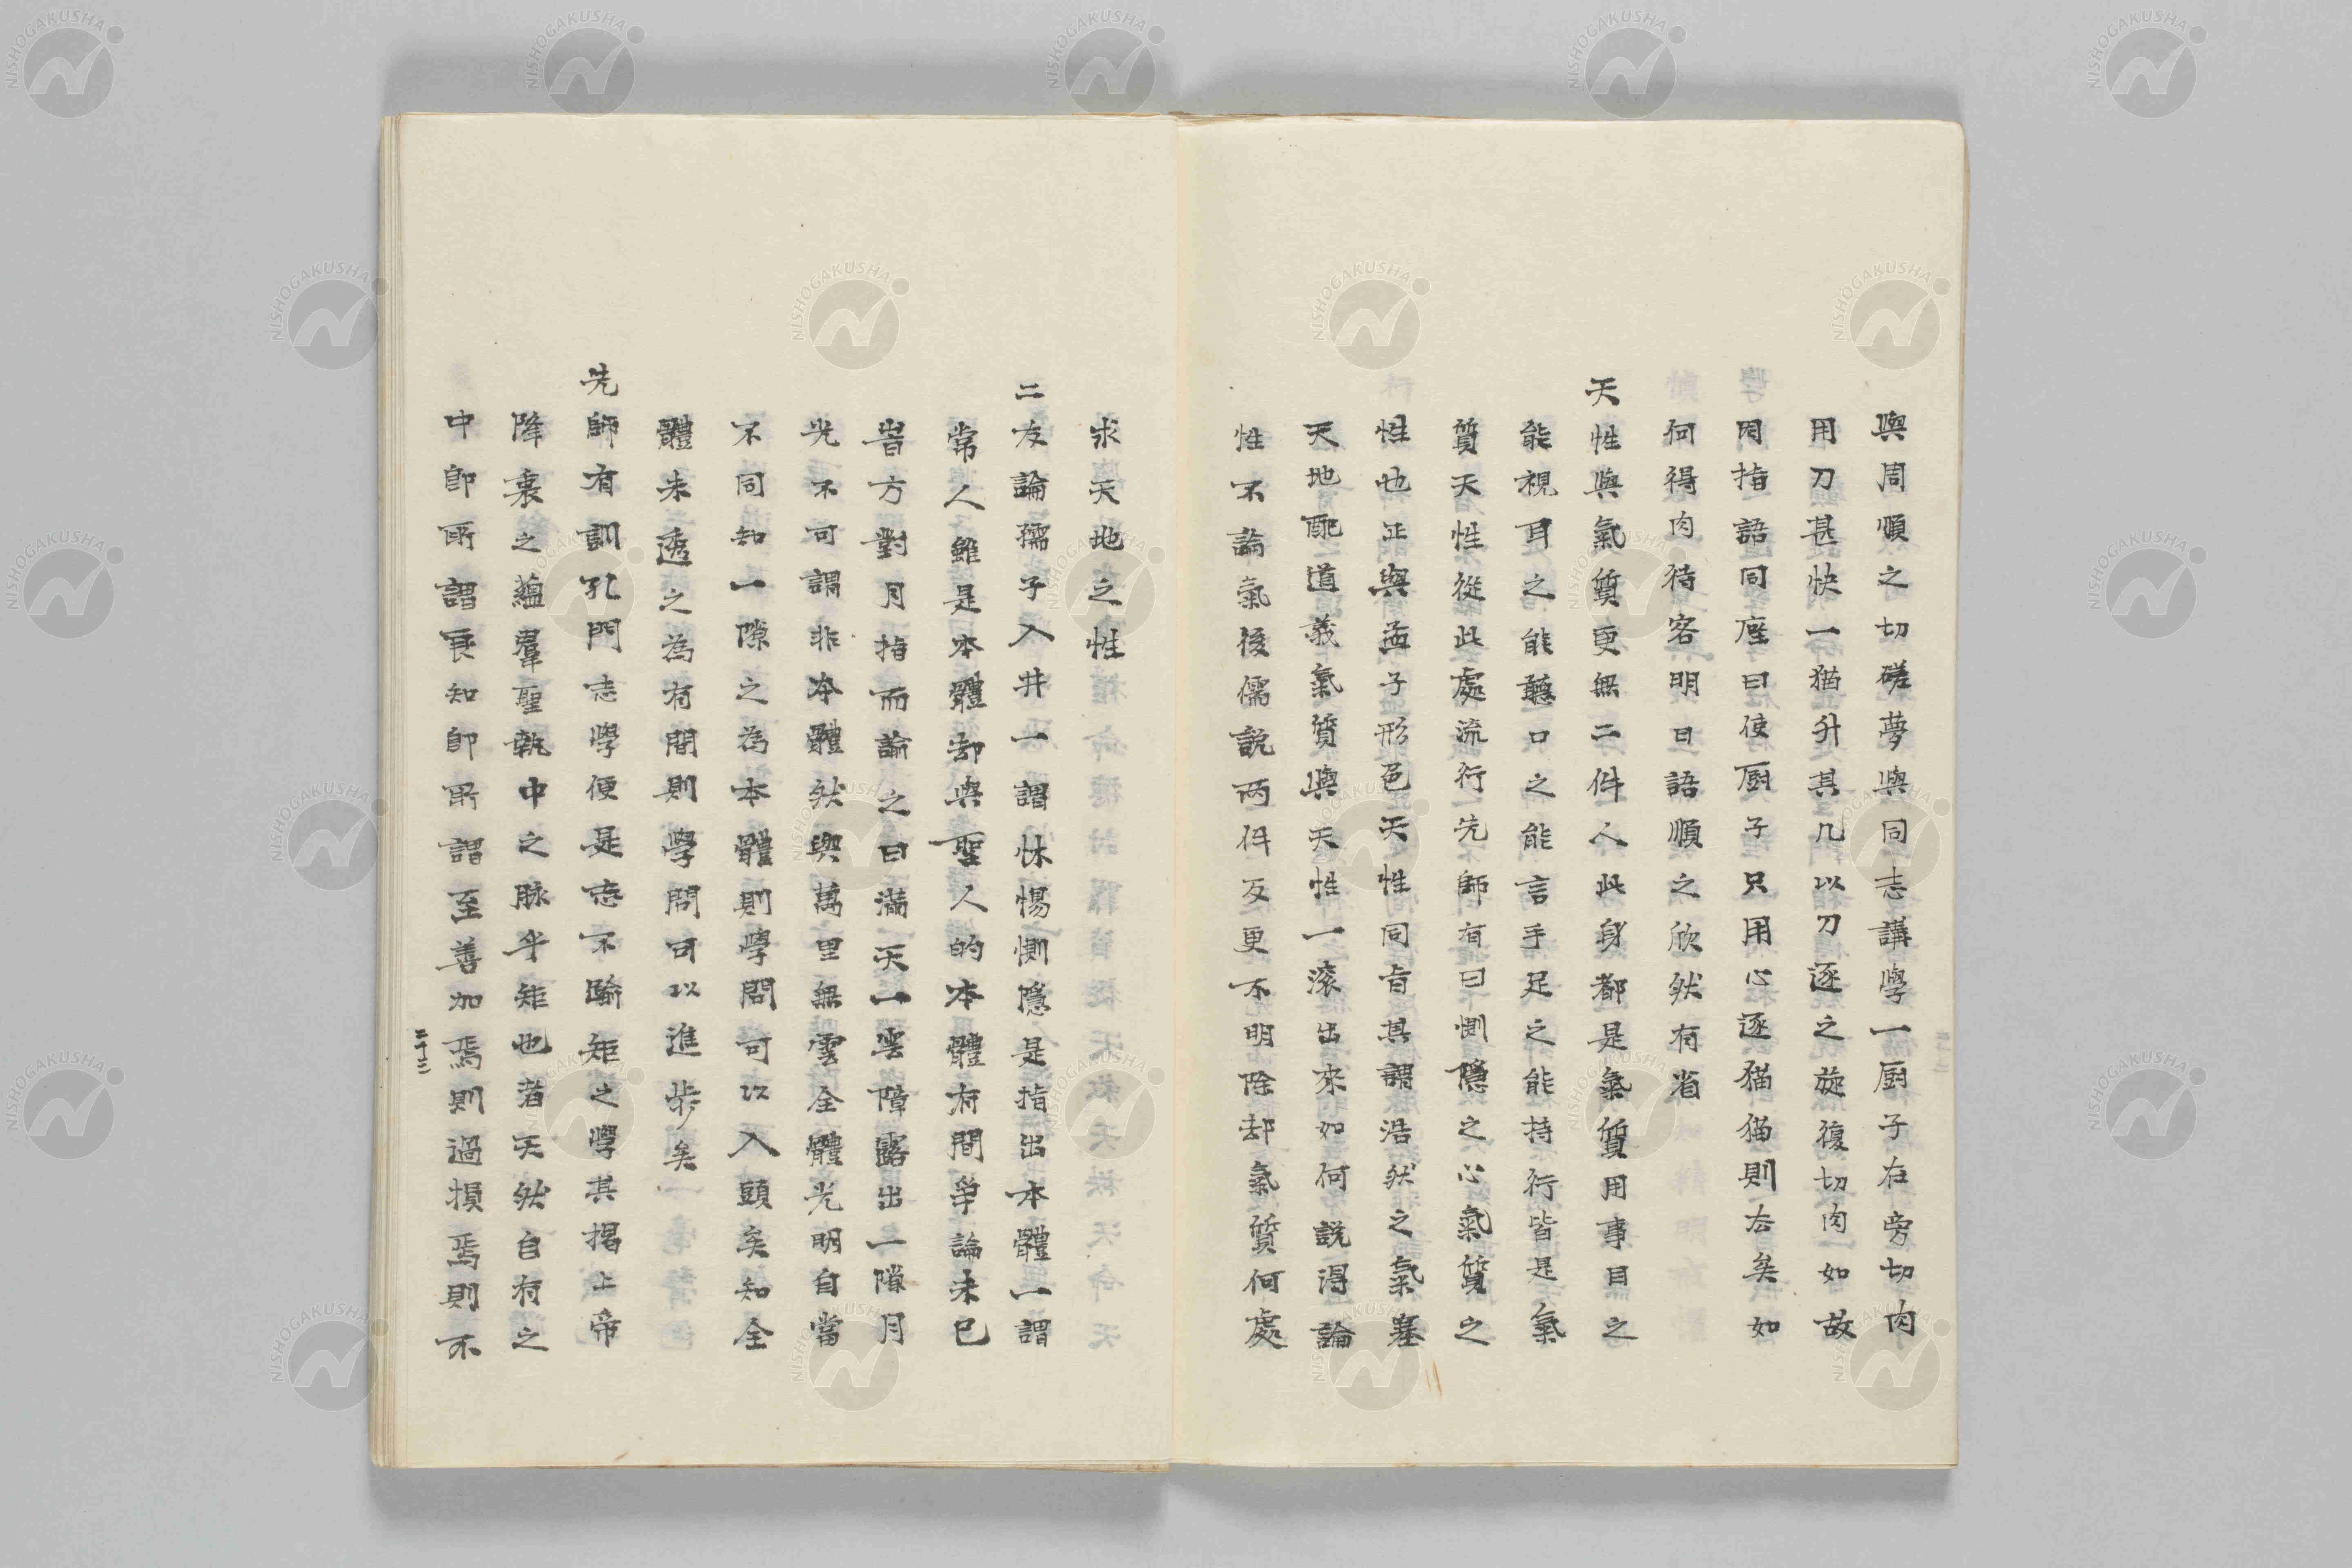 與周順之切磋夢與同志講學一厨子在旁切肉
用刀甚快一猫升其几以刀逐之旋復切肉一如故
因指語同座曰使厨子只用心逐猫猫則去矣如
何得肉待客明日語順之欣然有省
天性與氣質更無二件人此身都是氣質用事目之
能視耳之能聽口之能言手足之能持行皆是氣
質天性從此處流行先師有曰惻隱之心氣質之
性也正與孟子形色天性同旨其謂浩然之氣塞
天地配道義氣質與天性一滚出來如何說得論
性不論氣後儒說两件反更不明除却氣質何處
求天地之性
二友論孺子入井一謂怵惕惻隱是指出本體一謂
常人雖是本體却與聖人的本體有間爭論未已
昔方對月指而論之曰滿天一雲障露出一隙月
光不可謂非本體然與萬里無雲全體光明自當
不同知一隙之為本體則學問可以入頭矣知全
體未透之為有間則學問可以進步矣
先師有訓孔門志學便是志不踰矩之學其揭上帝
降衷之蘊羣聖執中之脉乎矩也者天然自有之
中即所謂良知即所謂至善加焉則過損焉則不
二十二
NISHOGAKUSHA